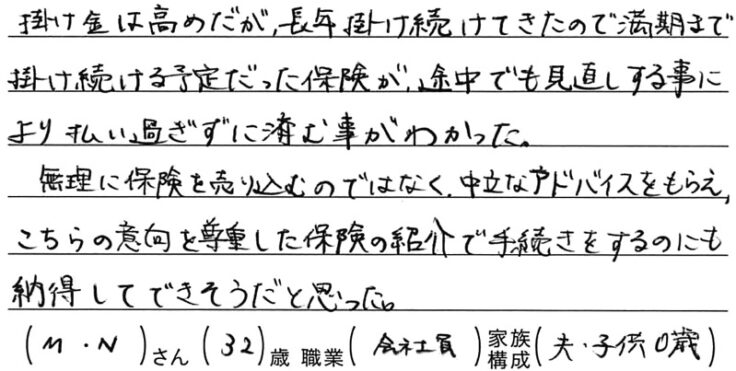 掛け金は高めだが、長年掛け続けてきたので満期まで
掛け続ける予定だった保険が、途中でも見直しする事に
より払い過ぎずに済む事がわかった。
無理に保険を売り込むのではなく、中立なアドバイスをもらえ、
こちらの意向を尊重した保険の紹介で手続きをするのにも
納得してできそうだと思った。
(M・N)さん(32)歳 職業(会社員)家族構成(夫・子供0歳)